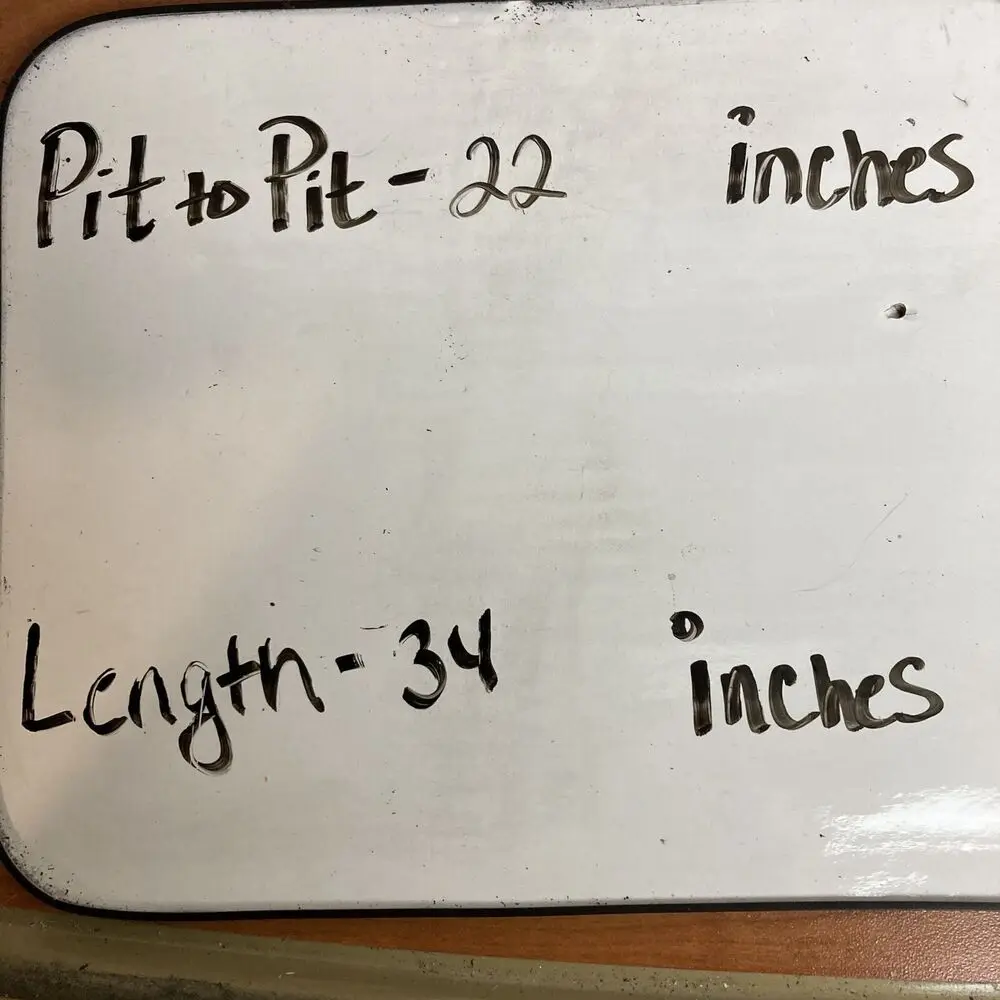 Pit to Pit - 22 inches
Length - 34 inches